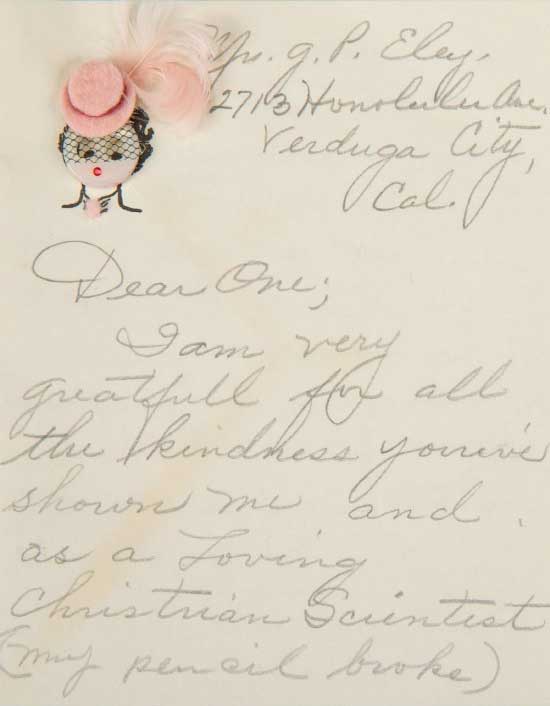 g. P. Eley.
2713 Honolulu Ave.
Verduga City,
Cal.
Dear One;
I am very
greatfull for all
the kindness youv'e
shown me and.
as a Loving
Christian Scientest
(my pencil broke)